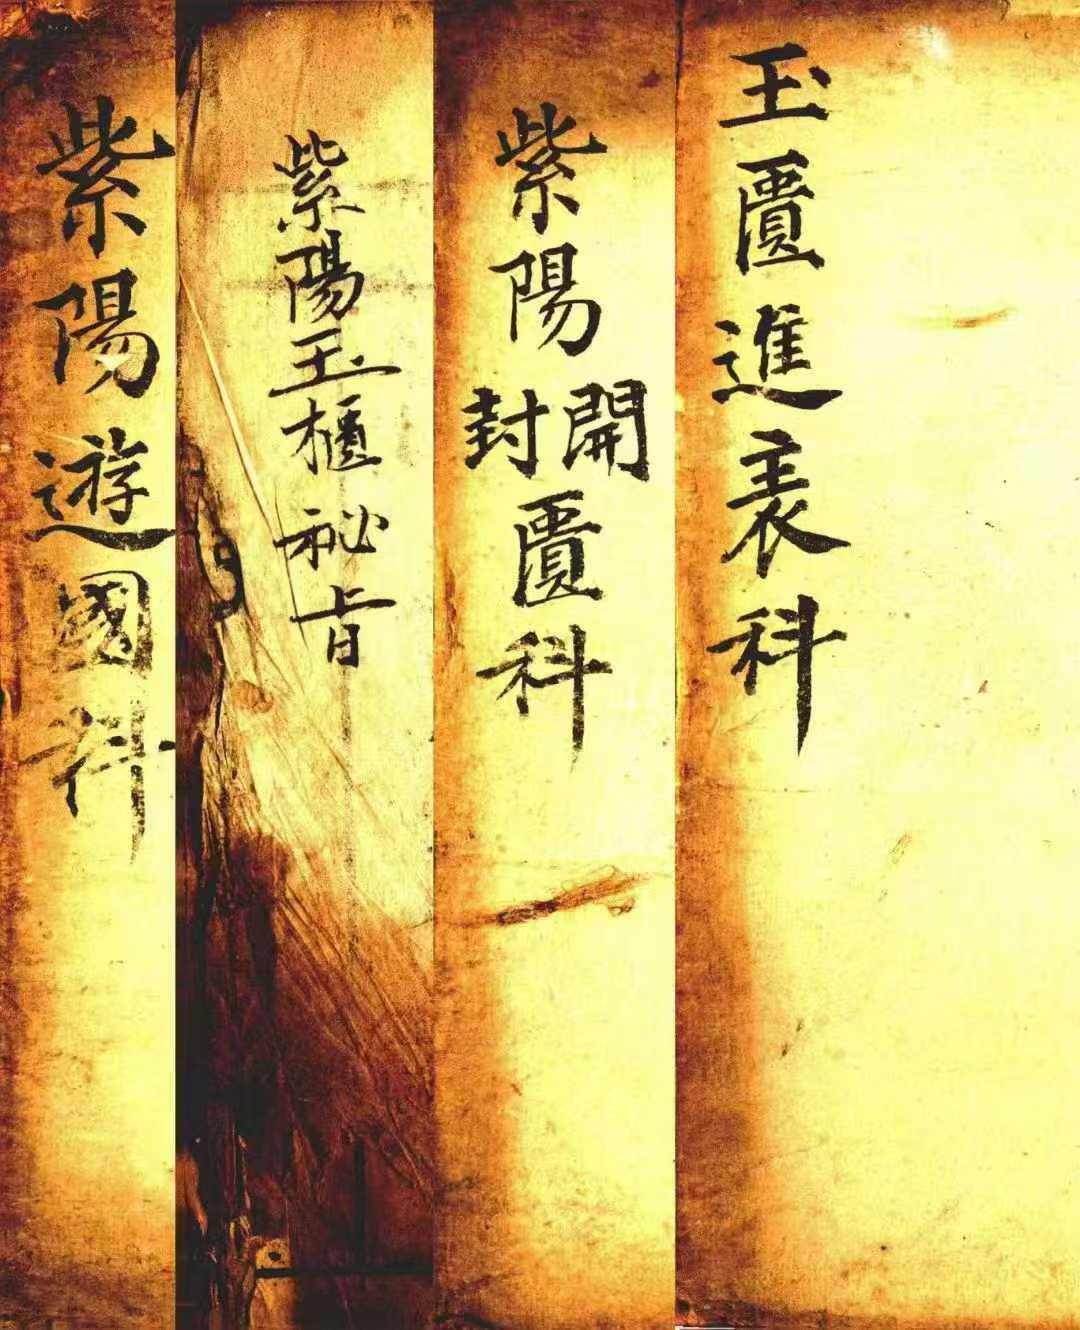 玉匱進表科
紫陽開封匱科
紫陽玉櫃祕旨
紫陽遊國科